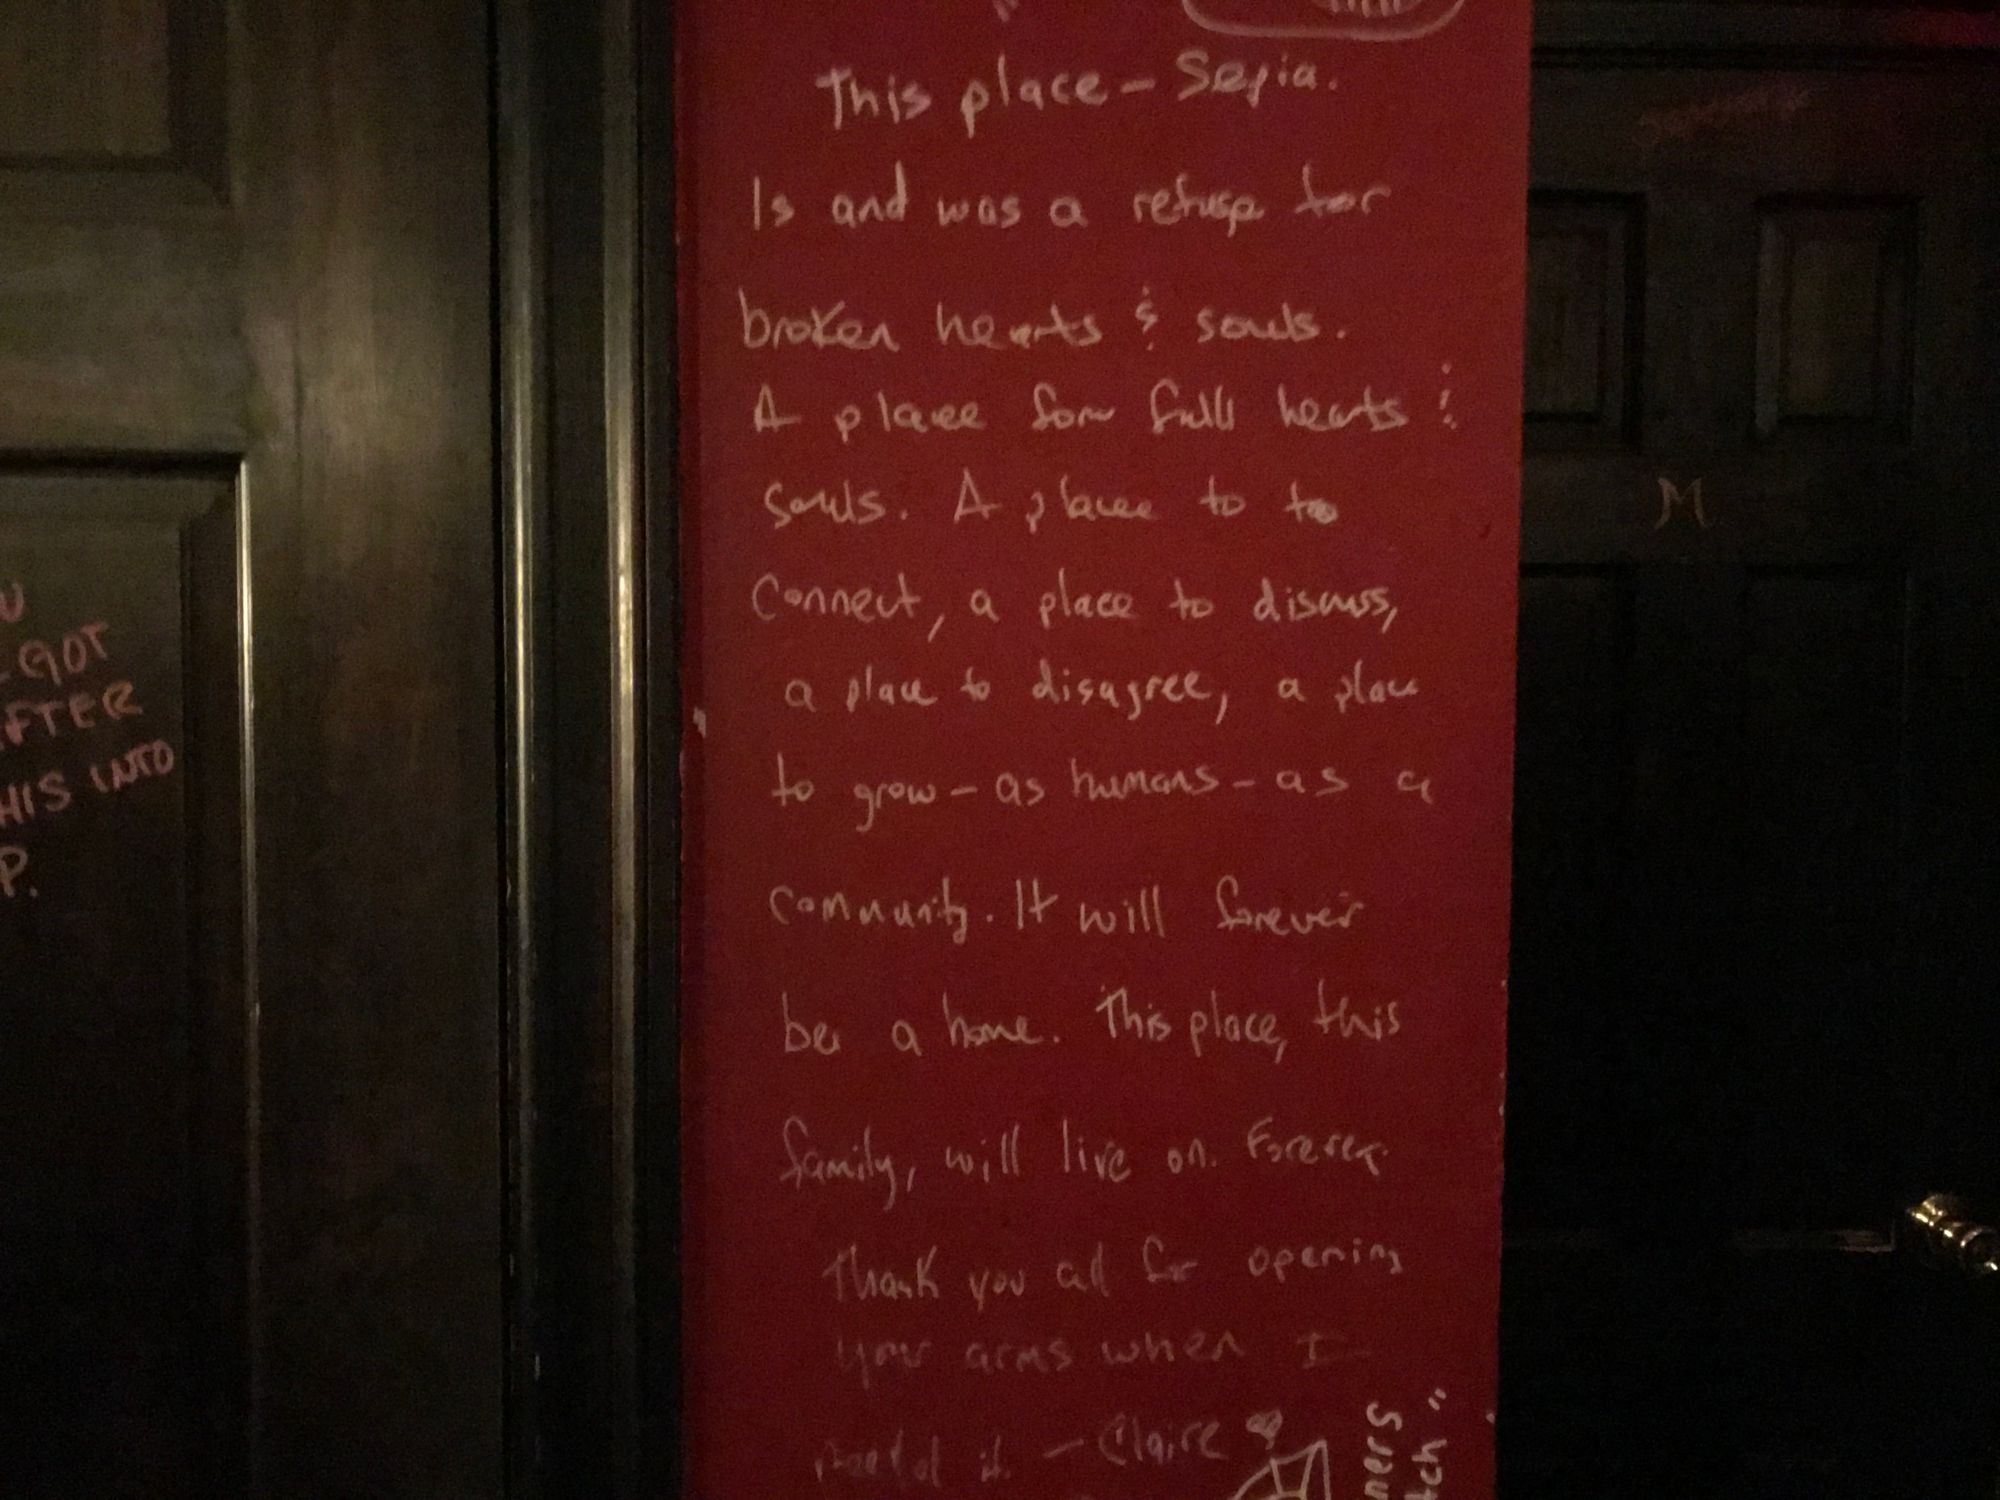 This place – Sepia.
Is and was a refuge for
broken hearts & souls.
A place for full hearts &
souls. A place to to
connect, a place to discuss,
a place to disagree, a place
to grow – as humans – as a
community. It will forever
be a home. This place, this
family, will live on. Forever.
Thank you all for opening
your arms when I
needed it. – Claire
GOT
AFTER
THIS INTO
P.
M